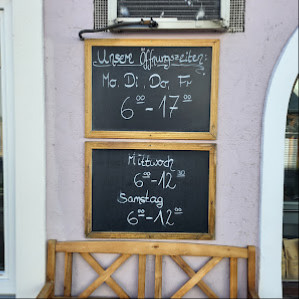 Unsere Öffnungszeiten:
Mo, Di, Do, Fr
6⁰⁰ - 17⁰⁰
Mittwoch
6⁰⁰ - 12³⁰
Samstag
6⁰⁰ - 12⁰⁰